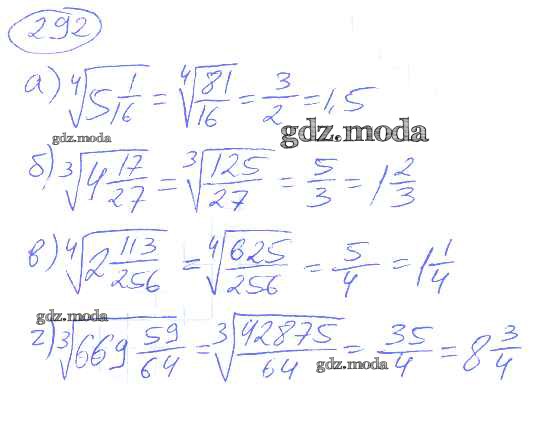 292
а) ⁴√(5 1/16) = ⁴√(81/16) = 3/2 = 1,5
gdz.moda
gdz.moda
б) ³√(4 17/27) = ³√(125/27) = 5/3 = 1 2/3
в) ⁴√(2 113/256) = ⁴√(625/256) = 5/4 = 1 1/4
gdz.moda
г) ³√(669 59/64) = ³√(42875/64) = 35/4 = 8 3/4
gdz.moda